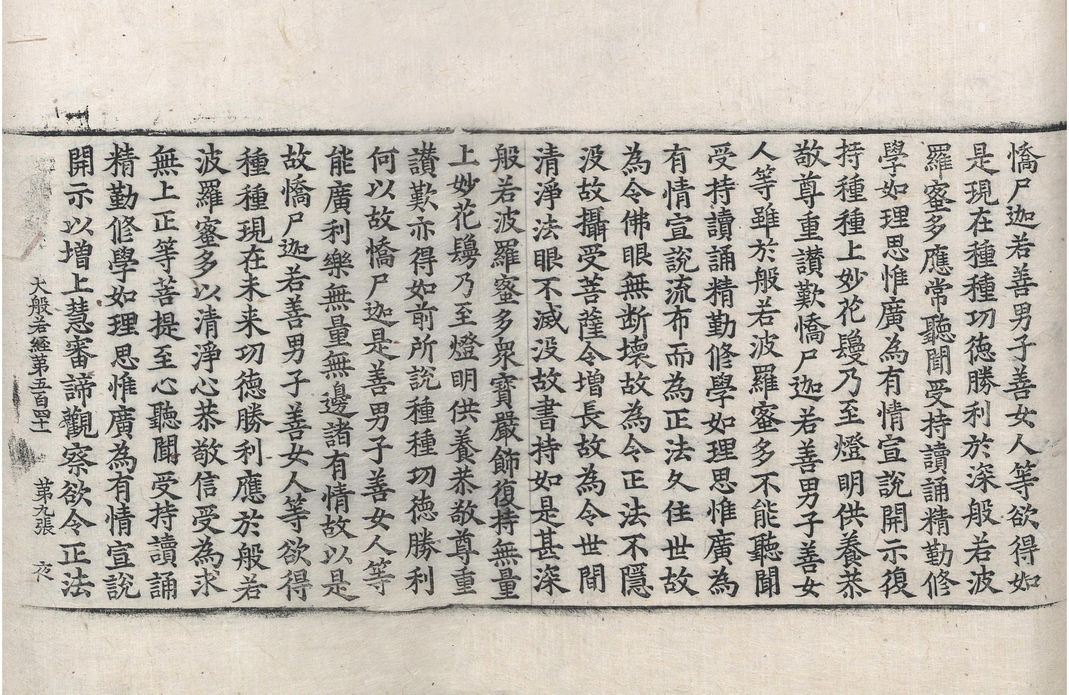 憍尸迦若善男子善女人等欲得如
是現在種種功徳勝利於深般若波
羅蜜多應常聽聞受持讀誦精勤修
學如理思惟廣為有情宣說開示復
持種種上妙花鬘乃至燈明供養恭
敬尊重讃歎憍尸迦若善男子善女
人等雖於般若波羅蜜多不能聽聞
受持讀誦精勤修學如理思惟廣為
有情宣說流布而為正法久住世故
為令佛眼無断壞故為令正法不隱
没故攝受菩薩令增長故為令世間
清淨法眼不滅没故書持如是甚深
般若波羅蜜多衆寶嚴飾復持無量
上妙花鬘乃至燈明供養恭敬尊重
讃歎亦得如前所說種種功徳勝利
何以故憍尸迦是善男子善女人等
能廣利樂無量無邊諸有情故以是
故憍尸迦若善男子善女人等欲得
種種現在未来功徳勝利應於般若
波羅蜜多以清淨心恭敬信受為求
無上正等菩提至心聽聞受持讀誦
精勤修學如理思惟廣為有情宣說
開示以增上慧審諦觀察欲令正法
大般若經第五百四十一 第九張 夜